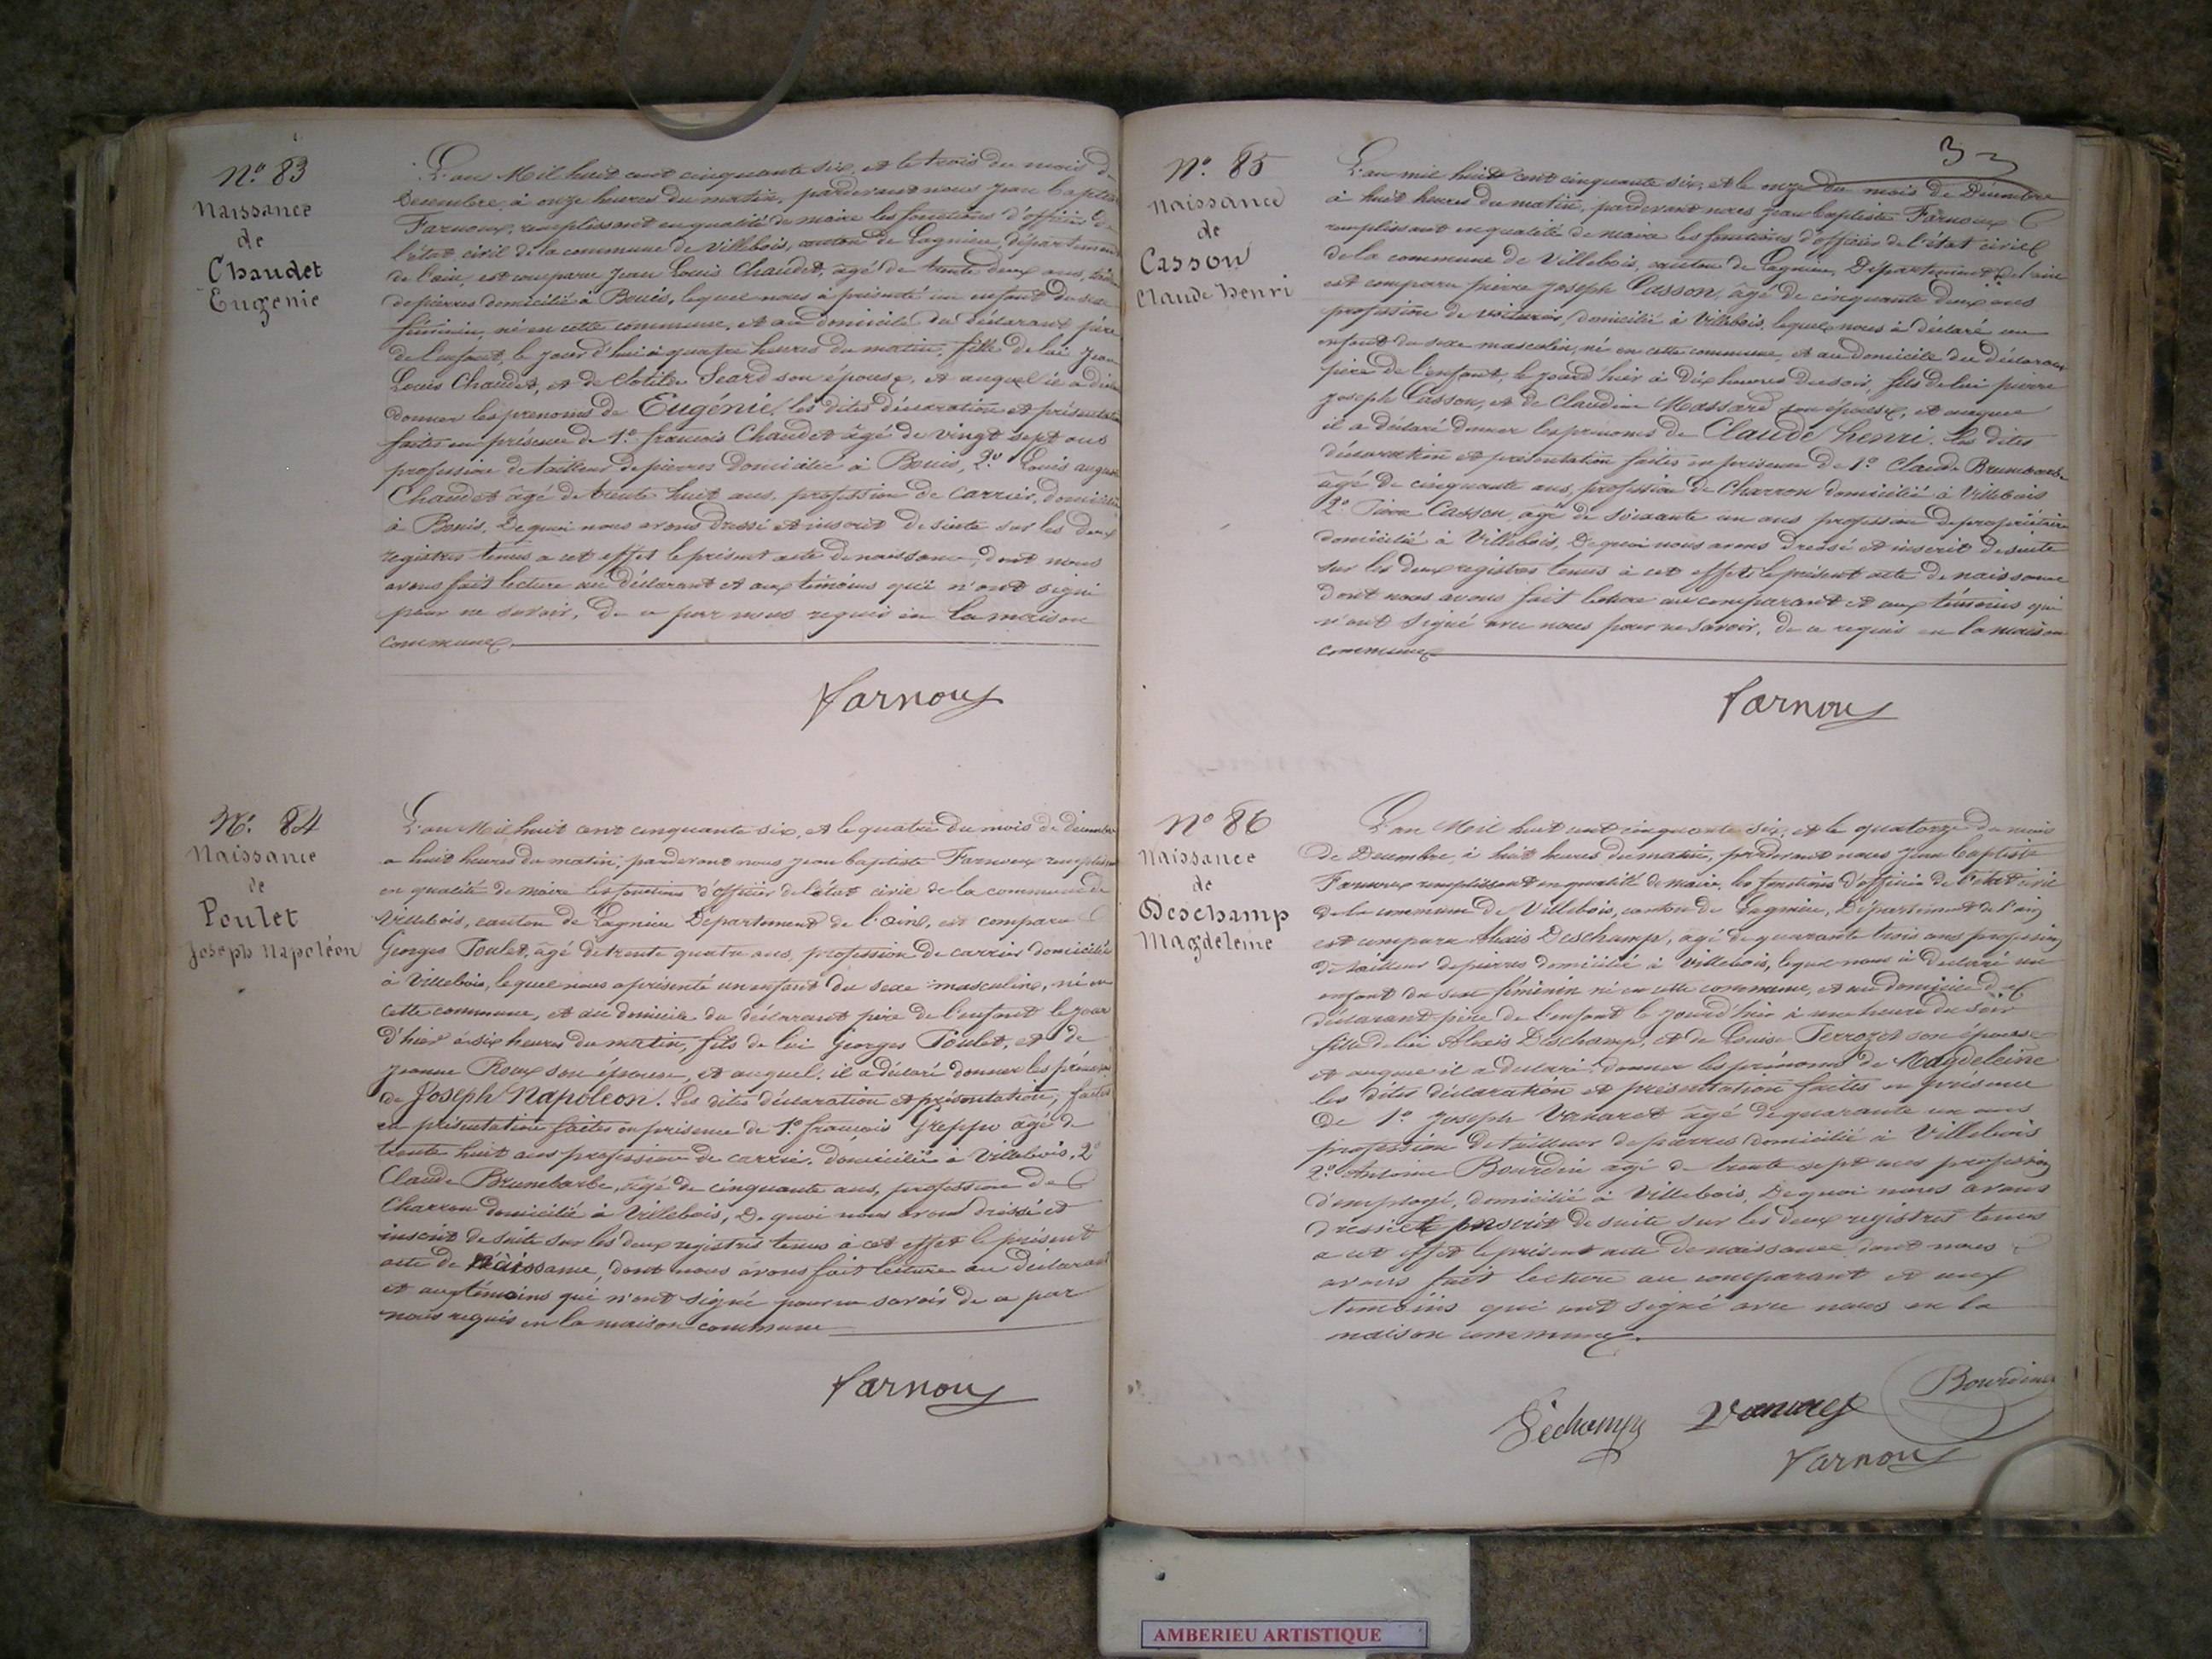 N.° 83
Naissance
de
Chaudet
Eugénie
L'an Mil huit cent cinquante six, et le trois du mois de
Decembre à onze heures du matin, pardevant nous jean baptiste
Farnoux, remplissant en qualité de maire les fonctions d'officier de
l'état civil de la commune de Villebois, canton de Lagnieu, département
de l'ain, est comparu jean Louis Chaudet, âgé de trente deux ans,
de pierres domicilié à Bouis, lequel nous à présenté un enfant du sexe
féminin, né en cette commune, et au domicile du déclarant père
de l'enfant, le jour d'hui à quatre heures du matin, fille de lui jean
Louis Chaudet, et de Clotilde Seard son épouse, et auquel il a déclaré
donner les prenoms de Eugénie, les dites déclaration et présentation
faites en présence de 1.° françois Chaudet âgé de vingt sept ans
profession de tailleur de pierres domicilié à Bouis, 2.° Louis auguste
Chaudet âgé de trente huit ans, profession de carrier, domicilié
à Bouis, De quoi nous avons dressé et inscrit de suite sur les deux
registres tenus a cet effet le présent acte de naissance, dont nous
avons fait lecture au déclarant et aux témoins qui n'ont signé
pour ne savoir, de ce par nous requis en la maison
commune
Farnoux
N.° 84
Naissance
de
Poulet
Joseph Napoléon
L'an Mil huit cent cinquante six, et le quatre du mois de décembre
a huit heures du matin, pardevant nous jean baptiste Farnoux remplissant
en qualité de maire les fonctions d'officier de l'état civil de la commune de
Villebois, canton de Lagnieu Département de l'ain, est comparu
Georges Poulet, âgé de trente quatre ans, profession de carrier domicilié
à Villebois, lequel nous a présenté un enfant du sexe masculin, né en
cette commune, et au domicile du déclarant père de l'enfant le jour
d'hier à six heures du matin, fils de lui Georges Poulet, et de
jeanne Roux son épouse, et auquel il a déclaré donner les prénoms
de Joseph Napoléon. Les dites déclaration et présentation, faites
en présentation faites en présence de 1.° françois Greppo âgé de
trente huit ans profession de carrié, domicilié à Villebois, 2.°
Claude Brunebarbe, âgé de cinquante ans, profession de
Charron domicilié à Villebois, De quoi nous avons dressé et
inscrit de suite sur les deux registres tenus à cet effet le présent
acte de naissance, dont nous avons fait lecture au déclarant
et aux témoins qui n'ont signé pour ne savoir de ce par
nous requis en la maison commune
Farnoux
33
N.° 85
Naissance
de
Casson
Claude henri
L'an mil huit cent cinquante six, et le onze du mois de Décembre
à huit heures du matin, pardevant nous jean baptiste Farnoux
remplissant en qualité de maire les fonctions d'officier de l'état civil
de la commune de Villebois, canton de Lagnieu, Département de l'ain
est comparu pierre joseph Casson, âgé de cinquante deux ans
profession de voiturier, domicilié à Villebois, lequel nous à déclaré un
enfant du sexe masculin, né en cette commune, et au domicile du déclarant
père de l'enfant, le jourd'hier à dix heures du soir, fils de lui pierre
joseph Casson, et de Claudine Massard son épouse, et auquel
il a déclaré donner les prenoms de Claude henri. Les dites
déclaration et présentation faites en présence de 1.° Claude Brunebarbe
âgé de cinquante ans, profession de Charron domicilié à Villebois
2.° Casson, âgé de soixante un ans profession de propriétaire
domicilié à Villebois, De quoi nous avons dressé et inscrit de suite
sur les deux registres tenus à cet effet le présent acte de naissance
dont nous avons fait lecture au comparant et aux témoins qui
n'ont signé avec nous pour ne savoir, de ce requis en la maison
commune
Farnoux
N° 86
Naissance
de
Deschamp
Magdeleine
L'an Mil huit cent cinquante six, et le quatorze du mois
de Decembre, à huit heures du matin, pardevant nous jean baptiste
Farnoux remplissant en qualité de maire, les fonctions d'officier de l'état civil
de la commune de Villebois, canton de Lagnieu, Département de l'ain
est comparu Alexis Deschamp, âgé de quarante trois ans profession
de tailleur de pierres domicilié à Villebois, lequel nous à déclaré un
enfant du sexe féminin né en cette commune, et au domicile du
déclarant père de l'enfant le jourd'hier à une heure du soir
fille de lui Alexis Deschamp, et de Louise Perrozet son épouse
et auquel il a déclaré donner les prénoms de Magdeleine
les dites déclaration et présentation faites en présence
de 1.° Joseph Vanaret âgé de quarante un ans
profession de tailleur de pierres domicilié à Villebois
2.° Antoine Bourdin âgé de trente sept ans profession
d'employé, domicilié à Villebois, De quoi nous avons
dressé et inscrit de suite sur les deux registres tenus
a cet effet le présent acte de naissance dont nous
avons fait lecture au comparant et aux
témoins qui ont signé avec nous en la
maison commune.
Bourdin
Déchamp
Farnoux
AMBERIEU ARTISTIQUE